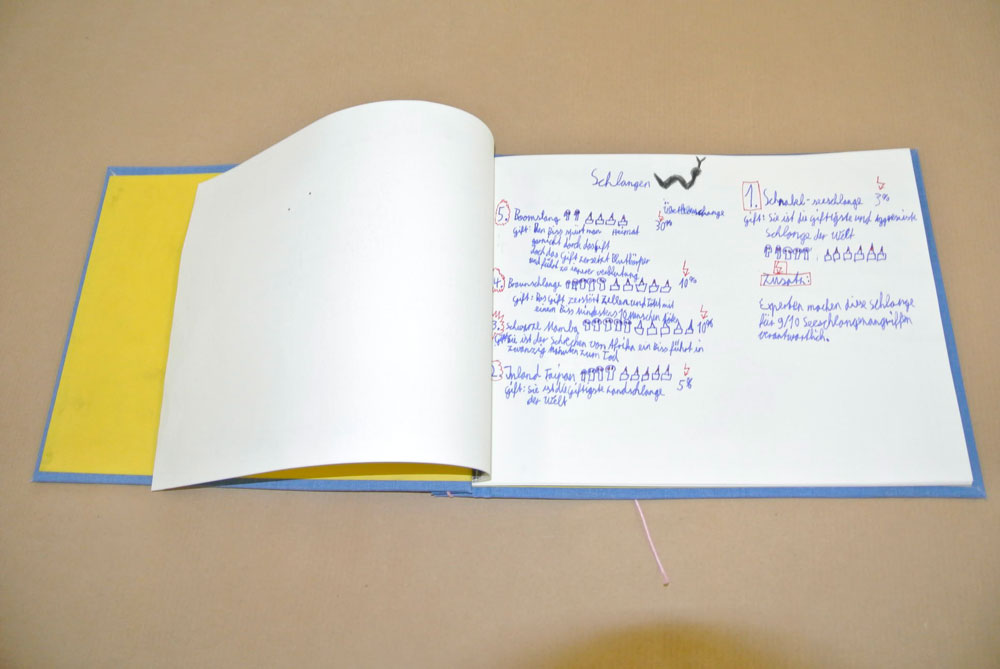 Schlangen
5. Boomslang
30%
Gift: Den Biss spürt man
doch das Gift zersetzt Blutkörper
und führt zu innerer verblutung
4. Braunschlange 10%
Gift: Das Gift zerstört Zellen und tötet mit
einem Biss mindestens 10 Menschen
3. Schwarze Mamba 10%
Sie ist der Schrecken von Afrika ein Biss führt in
zwanzig Minuten zum Tod
2. Inland Taipan 5%
Gift: Sie ist die Giftigste Landschlange
der Welt
1. Schnabel-seeschlange 3%
Gift: Sie ist die Giftigste und Aggressivste
Schlange der Welt
Zusatz:
Experten machen diese Schlange
für 9/10 Seeschlangenangriffen
verantwortlich.